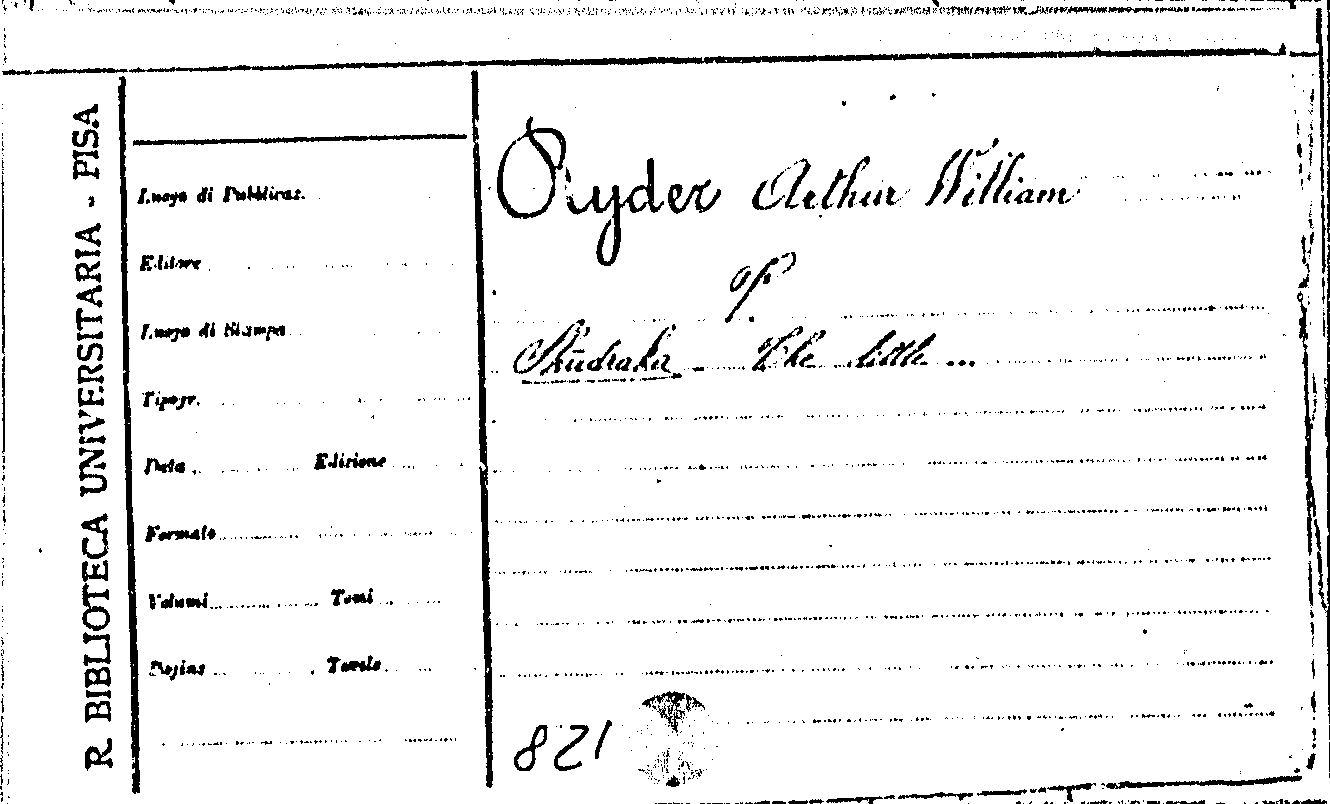 R. BIBLIOTECA UNIVERSITARIA - PISA
Luogo di Pubblicaz.
Editore
Luogo di Stampa
Tipogr.
Data Edizione
Formato
Volumi Tomi
Pagine Tavole
Ryder Arthur William
Shūdraka - The little ...
821